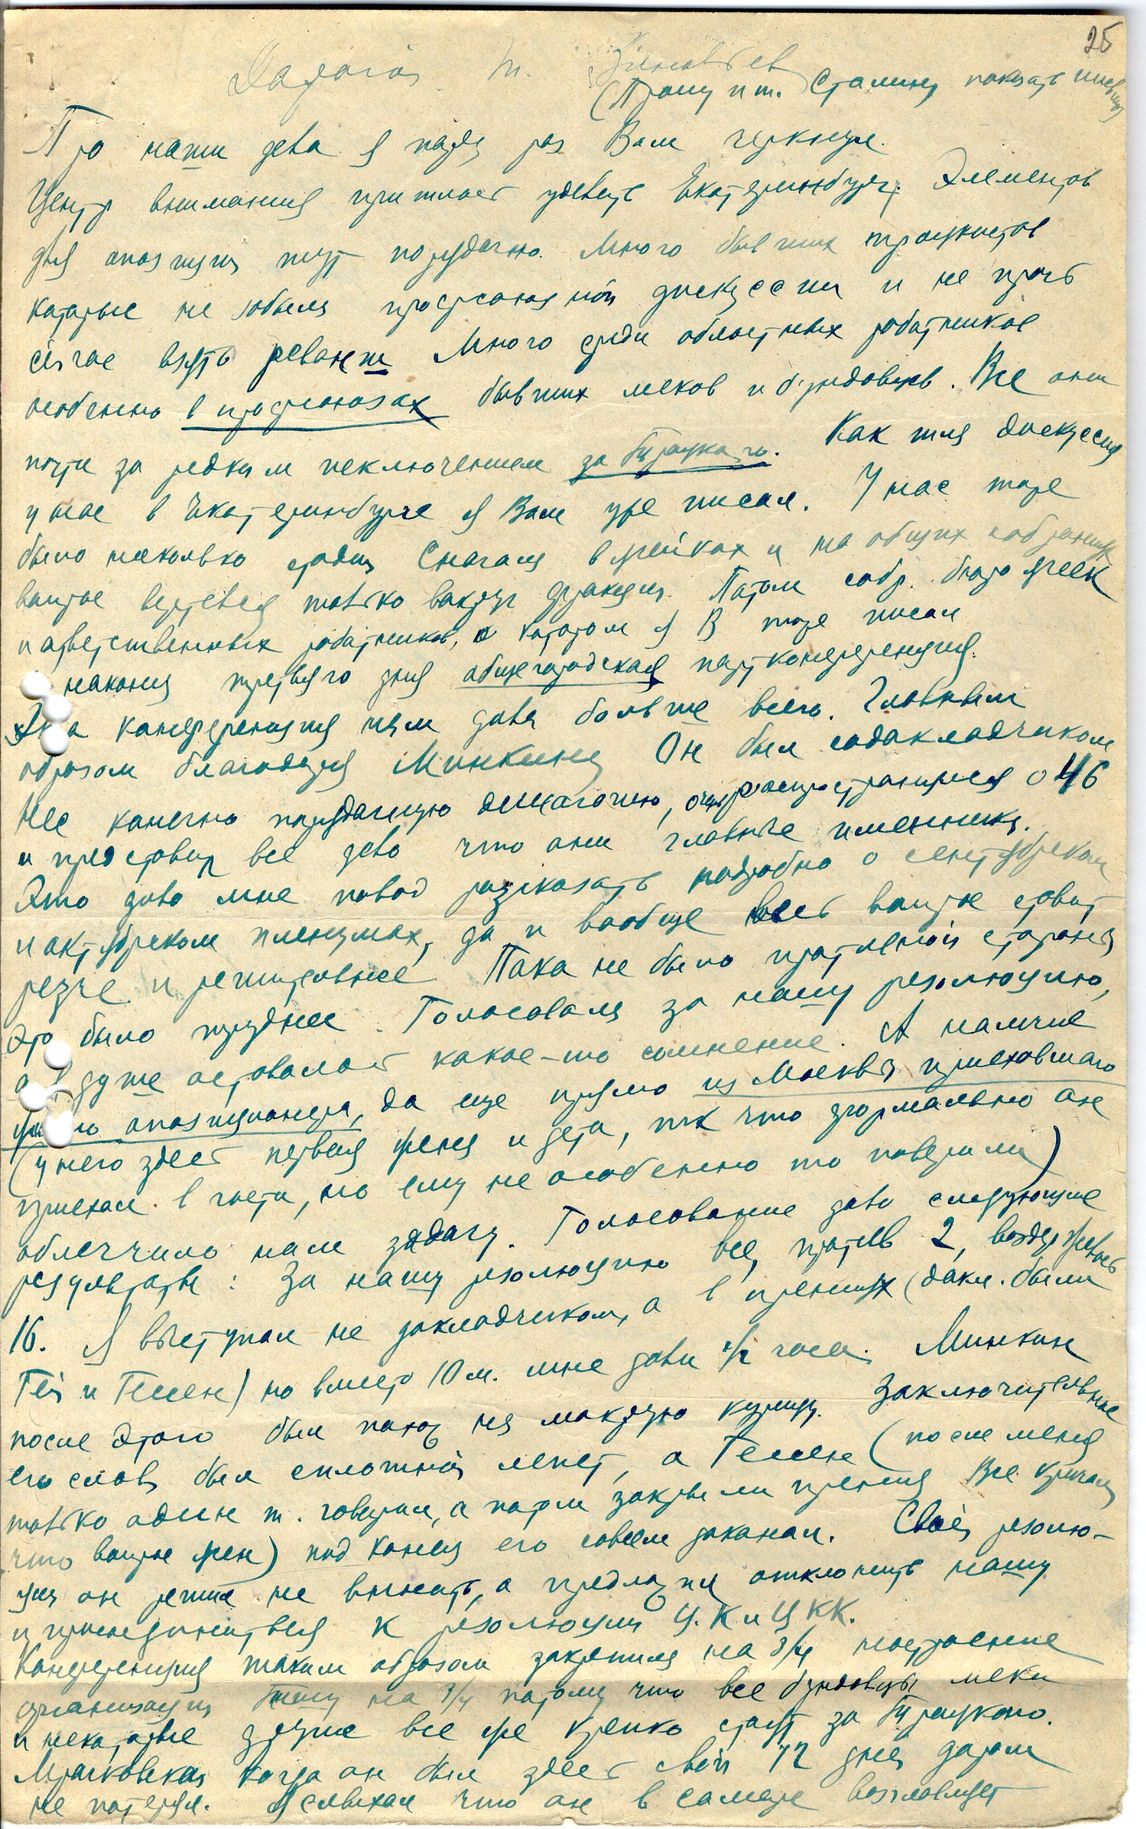 25
Дорогой т. Зиновьев
(Прошу и т. Сталину показать письмо)
Про наши дела я пару раз Вам черкнул.
Центр внимания приходится уделить Екатеринбургу. Элементов
для опозиции тут порядочно. Много бывших троцкистов
которые не забыли профсоюзной дискуссии и не прочь
сейчас взять реванш Много среди областных работников
особенно в профсоюзах бывших меков и бундовцев. Все они
почти за редким исключением за Троцкого. Как шла дискуссия
у нас в Екатеринбурге я Вам уже писал. У нас тоже
было несколько стадий Сначала в ячейках и на общих собраниях
вопрос вертелся только вокруг фракций. Потом собр. бюро ячеек
и ответственных работников, о котором я В. тоже писал
наконец третьего дня общегородская партконференция.
Эта конференция нам дала больше всего. Главным
образом благодаря Минкину Он был содокладчиком
Нес конечно порядочную демагогию, распространился о 46
и представил все дело что они главные именинники.
Это дало мне повод рассказать подробно о сентябрьском
и октябрьском пленумах, да и вообще весь вопрос ставит
резче и решительнее Пока не было противной стороны
это было труднее. Голосовали за нашу резолюцию,
а в душе оставалось какое-то сомнение. А наличие
опозиционера, да еще прямо из Москвы приехавшего
(у него здесь первая жена и дети, так что формально он
приехал в гости, но ему не особенно то поверили)
облегчило нам задачу. Голосование дало следующие
результаты: За нашу резолюцию все, против 2, воздержалось
16. Я выступал не докладчиком, а в прениях (докл. были
Гей и Гессен) но вместо 10 м. мне дали 1/2 часа. Минкин
после этого был похож на мокрую курицу. Заключительное
его слово был сплошной лепет, а Гессен (после меня
только один т. говорил, а потом закрыли прения Все кричали
что вопрос ясен) под конец его совсем доканал. Своей резолю-
ции он решил не вносить, а предложил отклонить нашу
и присоединиться к резолюции Ц.К и ЦКК.
Конференция таким образом закрепила на 3/4 настроение
организации Пишу на 3/4 потому что все бундовцы меки
и некоторые другие все же крепко стоят за Троцкого.
Мрачковский когда он был здесь свои 12 дней даром
не потерял. Я слыхал что он в Самаре возглавляет